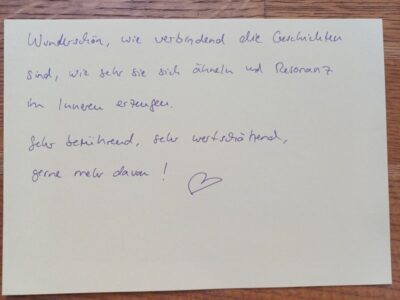 Wunderschön, wie verbindend die Geschichten
sind, wie sehr sie sich ähneln und Resonanz
im Inneren erzeugen.
Sehr berührend, sehr wertschätzend,
gerne mehr davon!